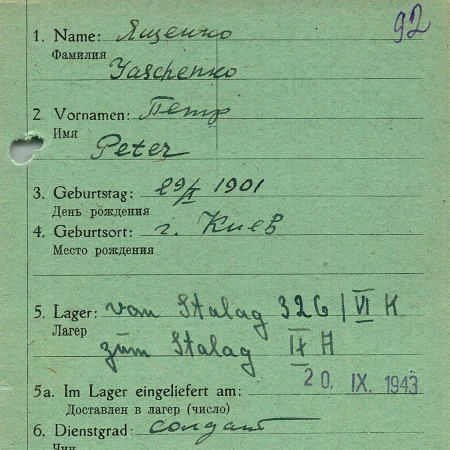 92
1. Name: Ященко
Фамилия
Jaschenko
2. Vornamen: Петр
Имя
Peter
3. Geburtstag: 29/X 1901
День рождения
4. Geburtsort: г. Киев
Место рождения
5. Lager: vom Stalag 326 / VI K
Лагер
zum Stalag IX A
20. IX. 1943
5a. Im Lager eingeliefert am:
Доставлен в лагер (число)
6. Dienstgrad: солдат
Чин